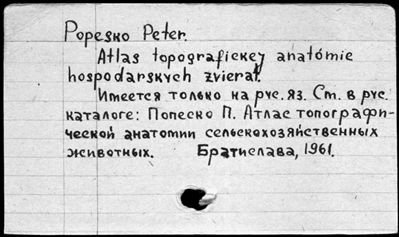 Popesko Peter.
Atlas topografickej anatómie
hospodarskych zvierat.
Имеется только на рус. яз. См. в рус.
каталоге: Попеско П. Атлас топографи-
ческой анатомии сельскохозяйственных
животных. Братислава, 1961.